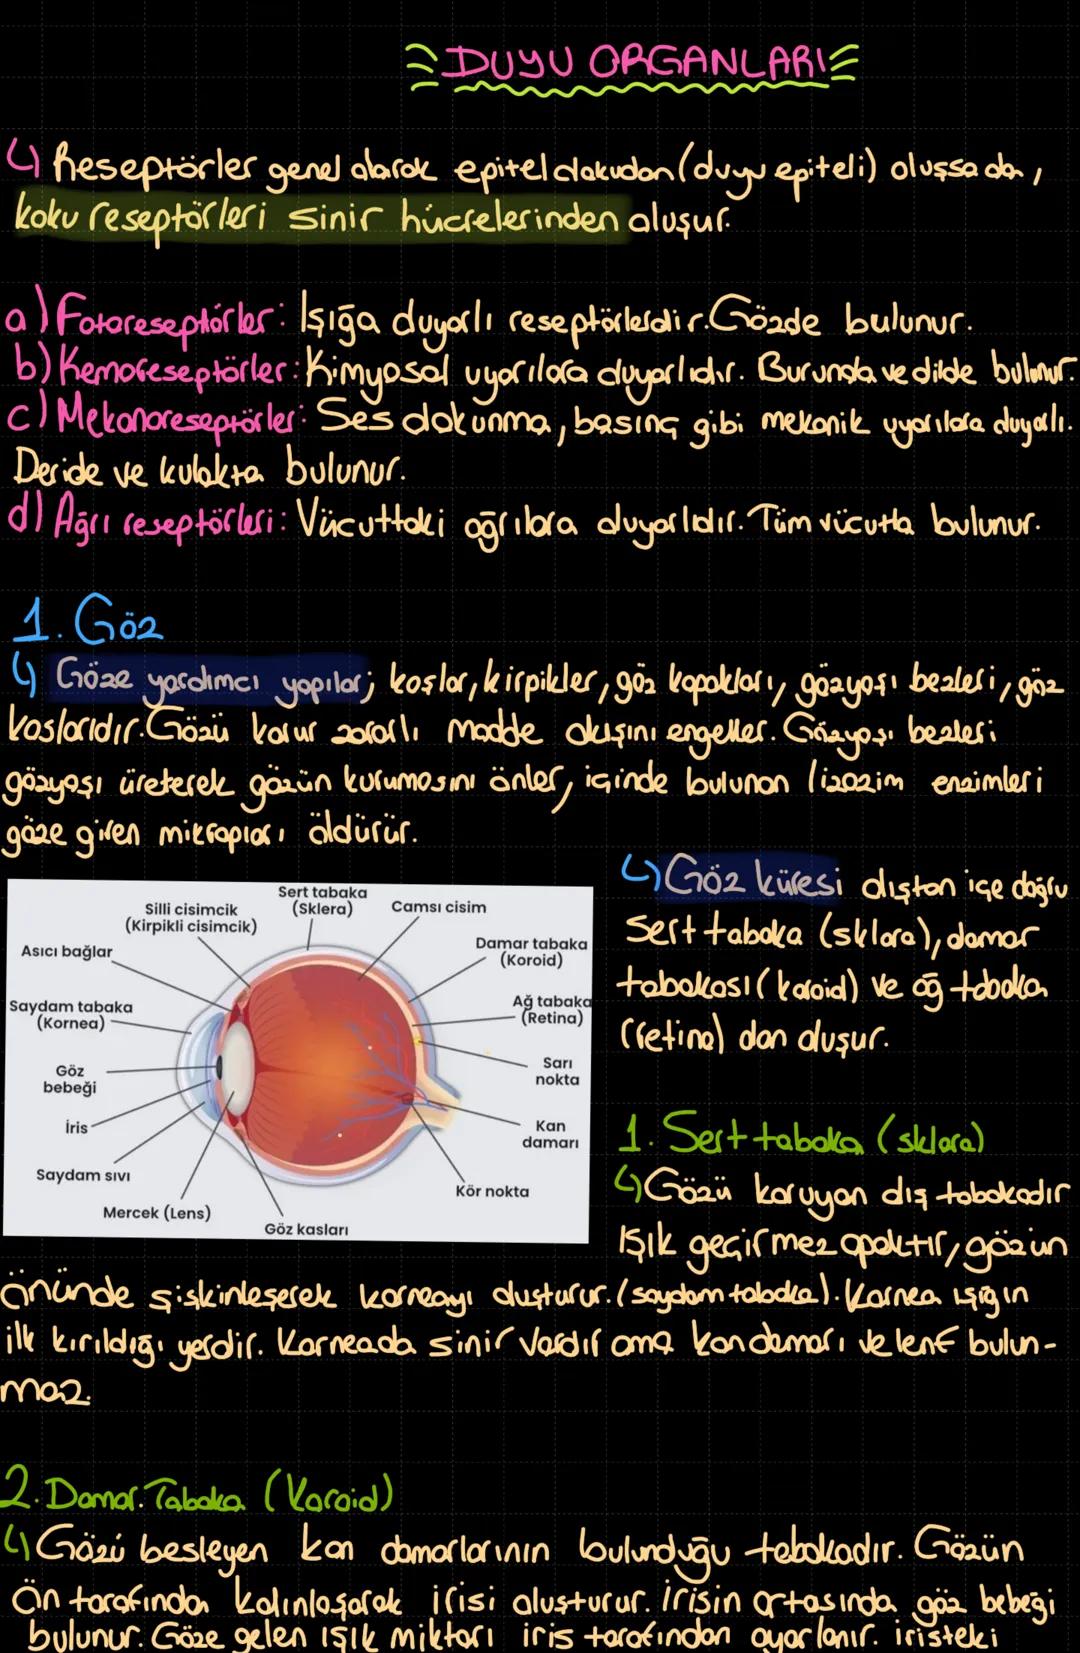 DUYU ORGANLARI
Reseptörler genel olarak epitel dokudan (duyu epiteli) oluşsa da,
koku reseptörleri sinir hücrelerinden oluşur.
a) Fotoreseptörler: Işığa duyarlı reseptörlerdir. Gözde bulunur.
b) Kemoreseptörler: Kimyasal uyarılara duyarlıdır. Burunda ve dilde bulunur.
c) Mekanoreseptörler: Ses dokunma, basınç gibi mekanik uyarılara duyarlı.
Deride ve kulakta bulunur.
d) Ağrı reseptörleri: Vücuttaki ağrılara duyarlıdır. Tüm vücutta bulunur.
1. Göz
Göze yardımcı yapılar; kaşlar, kirpikler, göz kapakları, gözyaşı bezleri, göz
kaslarıdır. Gözü korur zararlı madde oluşını engeller. Gözyaşı bezleri
gözyaşı üreterek gözün kurumasını önler, içinde bulunan lizozim enzimleri
göze giren mikropları öldürür.
Sert tabaka
(Sklera)
Silli cisimcik
(Kirpikli cisimcik)
Camsı cisim
Asıcı bağlar
Damar tabaka
(Koroid)
Saydam tabaka
(Kornea)
Ağ tabaka
(Retina)
Göz
bebeği
Sarı
nokta
İris
Kan
damarı
Saydam sıvı
Kör nokta
Mercek (Lens)
Göz kasları
Göz küresi dıştan içe doğru
Sert tabaka (sklora), damar
tabakası (koroid) ve ağ tabaka
(retina) dan oluşur.
1. Sert tabaka (sklora)
Gözü koruyan dış tabakadır
Işık geçirmez opaktır, gözün
önünde şişkinleşerek korneayı oluşturur. (saydam tabaka). Kornea ışığın
ilk kırıldığı yerdir. Korneada sinir vardır ama kan damarı ve lenf bulun-
maz.
2. Damar Tabaka (Koroid)
Gözü besleyen kan damarlarının bulunduğu tabakadır. Gözün
Ön tarafından kalınlaşarak irisi oluşturur. İrisin ortasında göz bebeği
bulunur. Göze gelen ışık miktarı iris tarafından ayarlanır. iristeki